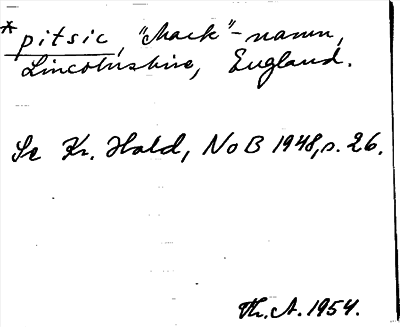 *pitsic, "Mack"-namn,
Lincolnshire, England.
Se Kr. Hald, NoB 1948, s. 26.
Th. A. 1954.